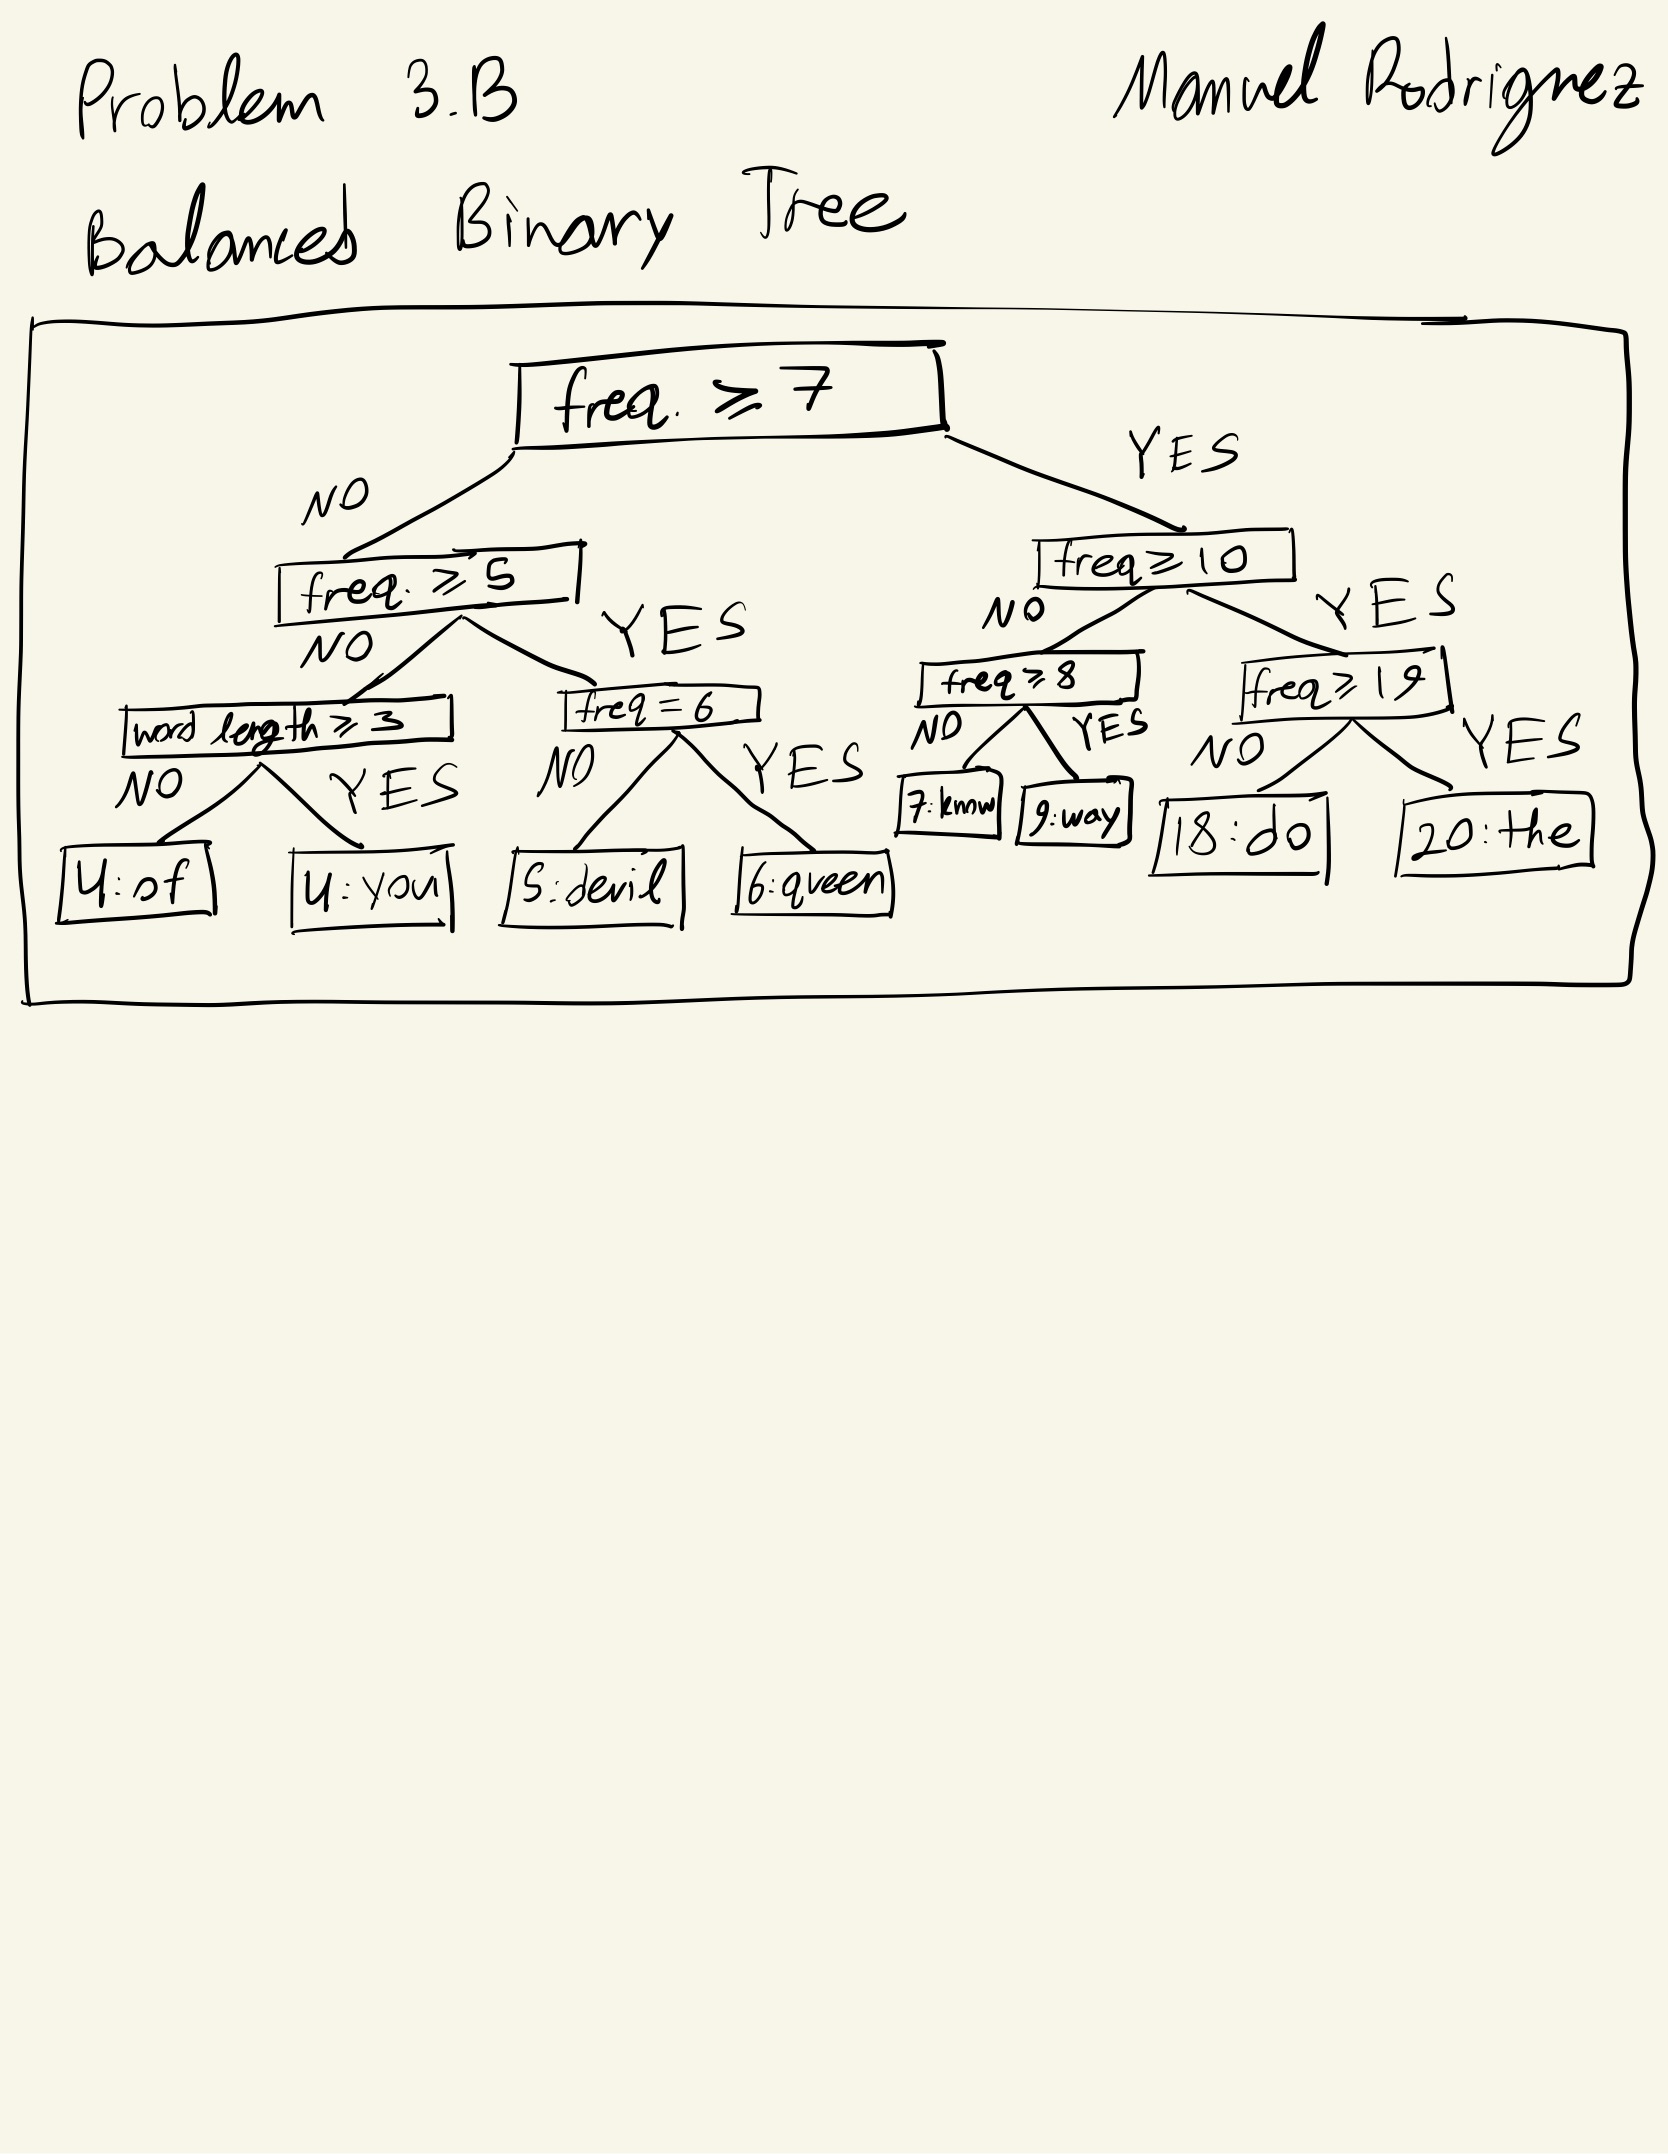 Problem 3.B
Manuel Rodriguez
Balanced Binary Tree
freq. ≥ 7
NO
YES
freq. ≥ 5
freq ≥ 10
NO
YES
NO
YES
word length ≥ 3
freq = 6
freq ≥ 8
freq ≥ 19
NO
YES
NO
YES
NO
YES
NO
YES
4: of
4: you
5: devil
6: queen
7: know
9: way
18: do
20: the